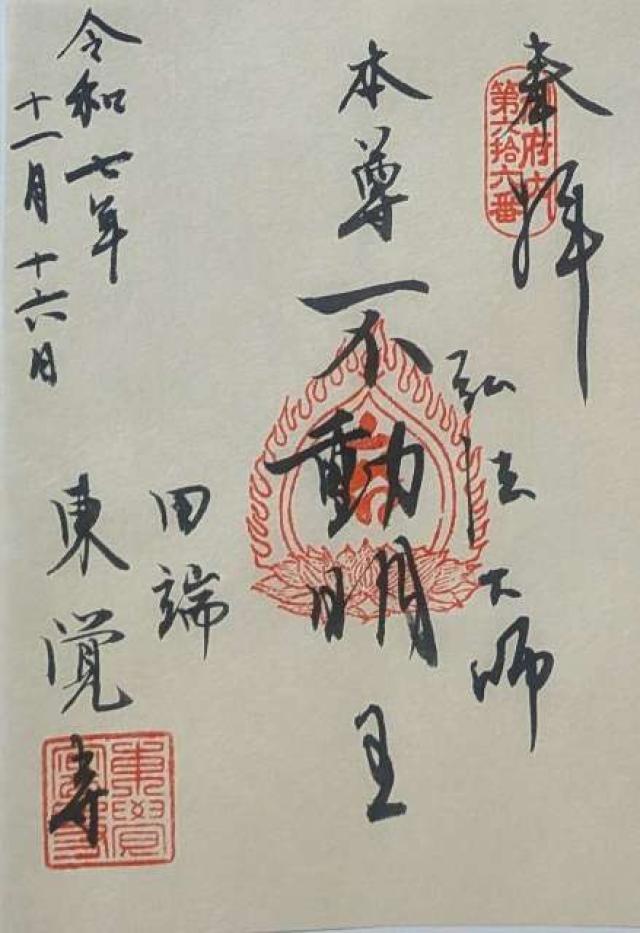 奉拝
御府内
第六拾六番
弘法大師
本尊不動明王
田端
東覚寺
令和七年
十一月十六日
東覺寺